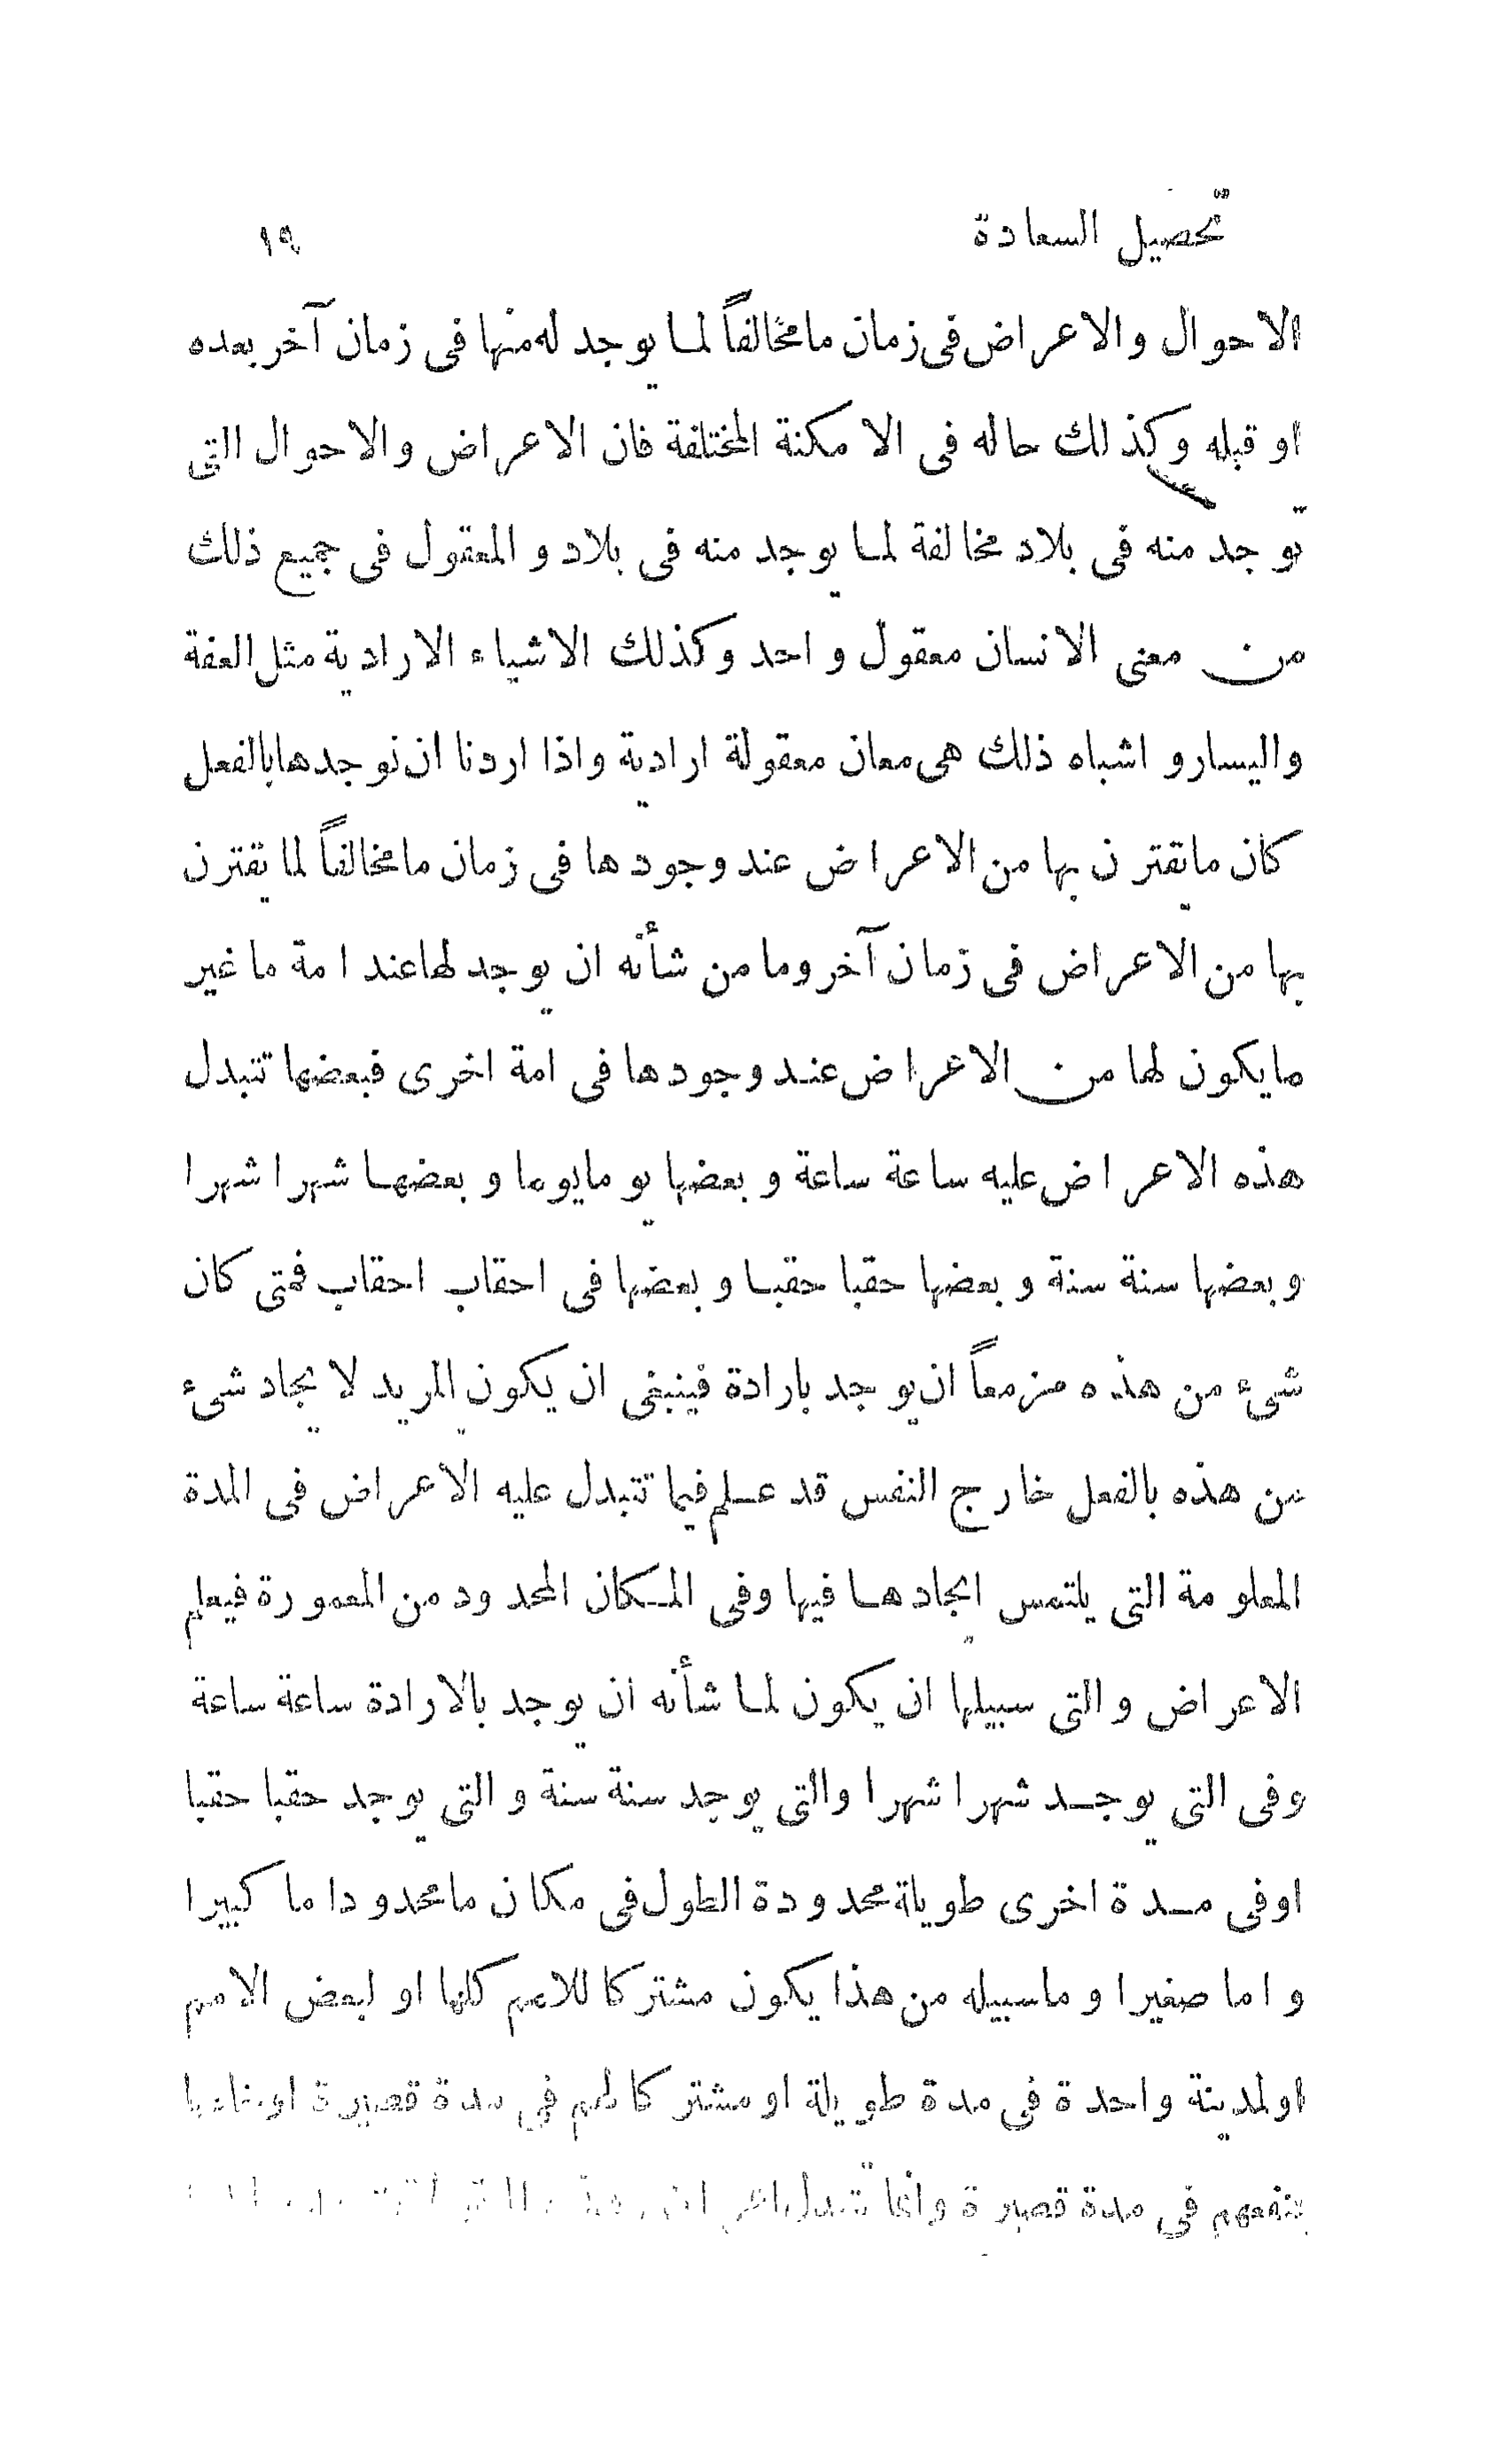 تحصيل السعادة ١٩
الاحوال والاعراض فى زمان ما مخالفاً لما يوجد له منها فى زمان آخر بعده
او قبله وكذلك حاله فى الامكنة المختلفة فان الاعراض والاحوال التى
توجد منه فى بلاد مخالفة لما يوجد منه فى بلاد والمعقول فى جميع ذلك
من معنى الانسان معقول واحد وكذلك الاشياء الارادية مثل العفة
واليسار واشباه ذلك هى معان معقولة ارادية واذا اردنا ان نوجدها بالفعل
كان ما يقترن بها من الاعراض عند وجودها فى زمان ما مخالفاً لما يقترن
بها من الاعراض فى زمان آخر وما من شأنه ان يوجد لها عند امة ما غير
ما يكون لها من الاعراض عند وجودها فى امة اخرى فبعضها تتبدل
هذه الاعراض عليه ساعة ساعة وبعضها يوما يوما وبعضها شهرا شهرا
وبعضها سنة سنة وبعضها حقبا حقبا وبعضها فى احقاب احقاب فمتى كان
شىء من هذه مزمعاً ان يوجد بارادة فينبغى ان يكون المريد لايجاد شىء
من هذه بالفعل خارج النفس قد علم فيما تتبدل عليه الاعراض فى المدة
المعلومة التى يلتمس ايجادها فيها وفى المكان المحدود من المعمورة فيعلم
الاعراض والتى سبيلها ان يكون لما شأنه ان يوجد بالارادة ساعة ساعة
وفى التى يوجد شهرا شهرا والتى يوجد سنة سنة والتى يوجد حقبا حقبا
اوفى مدة اخرى طويلة محدودة الطول فى مكان ما محدود اما كبيرا
واما صغيرا وما سبيله من هذا يكون مشتركا للامم كلها او لبعض الامم
اولمدينة واحدة فى مدة طويلة او مشتركا لهم فى مدة قصيرة او
ينفعهم فى مدة قصيرة وانما تتبدل